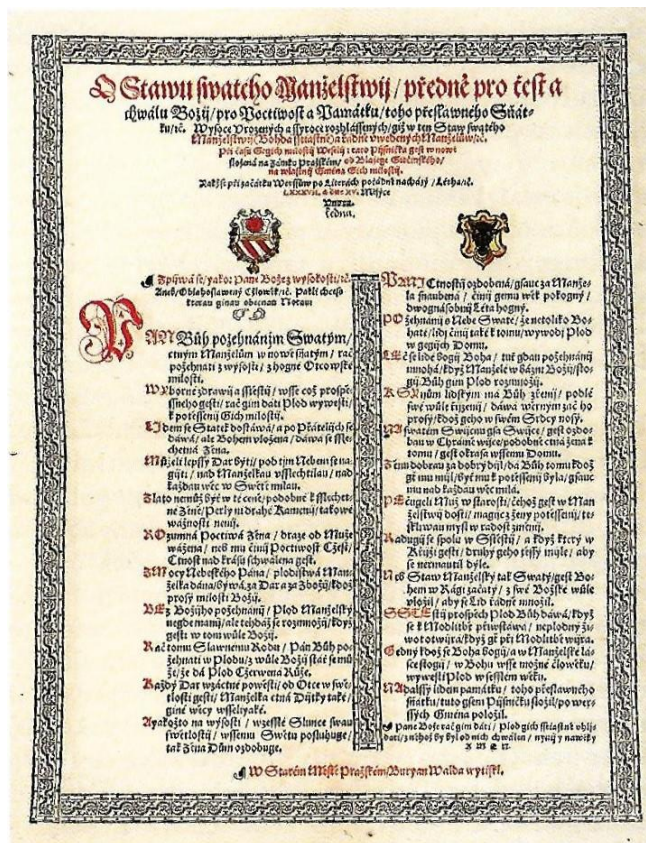 O Stawu swateho Manželstwij / předně pro čest a
chwálu Božij / pro Poctiwost a Památku / toho přeslawného Sňát-
ku / rč. Wysoce Vrozených a ssyroce rozhlássených / giž w ten Staw swatého
Manželstwij (Bohdá sstiastně) a řádně vwedených Manželůw / rč.
Při času Gegich milostij Weselij : tato Pijsnička gest w nowě
složená na Zámku Pražském / od
na wlastnij Gména Gich milostij.
při začátku Werssůw po Literách pořádně nacházý / Létha / rč.
LXXXVII. a dne XV. Měsýce
Vnora.
Zpijwá se / yako: Pane Bože z wysokosti / rč.
Aneb / Oblahoslawený Cžlowěk / rč. Paklť chceš
kteraú ginaú obecnaú Notaú:
PAN Bůh požehnánijm Swatým /
ctným Manželům w nowě sňatým / rač
požehnati z wysosti / z hogné Otcowské
milosti.
Weyborné zdrawij a sstěstij / wsse což prospě-
ssného gesti / rač gim dáti Plod wywesti /
k potěssenij Gich milostij.
LIdem se Statek dostáwá / a po Přátelijch se
dáwá / ale Bohem vložena / dáwá se ssle-
chetná Žena.
Můželi lepssý Dar býti / pod tijm Nebem se na-
gijti / nad Manželkau vsslechtilau / nad
každau wěc w Swětě milau.
Zlato nemůž býti w té ceně / podobné k sslechet-
né Ženě / Perly ni drahé Kamenij / takowé
wážnosti nenij.
ROzumná Poctiwá Žena / draze od Muže
wážena / neb mu činij Poctiwost Cžest /
Ctnost nad krásu schwálena gest.
Z MOcy Nebeského Pána / plodistwá Man-
želka dána / býwá, za Dar a za Zbožij / když
prosý milosti Božij.
BEz Božijho požehnánij / Plod Manželský
negde maníj / ale tehdáž se rozmnožij / když
gesti w tom wůle Božij.
Rač tomu Slawnému Rodu / Pán Bůh po-
žehnati w Plodu / z wůle Božij stáť se mů-
že / že dá Plod Cžerwená Růže.
Každý Dar wzáctné powěsti / od Otce w swě-
tlosti gesti / Manželka ctná Dijtky také /
giné wěcy wsselyaké.
Ayakožto na wýsosti / wzesslé Slunce swau
swětlostij / wssemu Swětu posluhuge /
tak Žena Dům ozdobuge.
PANI Ctnostij ozdobená / gsauc za Manže-
la snaubená / činij gemu wěk pokogný /
dwognásobnij Léta hogný.
POžehnánij s Nebe Swaté / že netoliko Bo-
haté / lidi činij také k tomu / wywodij Plod
w gegijch Domu.
LEČ se lidé bogij Boha / tuť gdau požehnánij
mnohá / když Manželé w bázni Božij / sto-
gij Bůh gim Plod rozmnožij.
K SYnům lidským má Bůh zřenij / podlé
swé wůle řijzenij / dáwá wěrným zač ho
prosý / kdož geho w swém Srdcy nosý.
NA swatém Swijcnu gsa Swijce / gest ozdo-
bau w Chrámě wijce / podobně ctná žena k
tomu / gest okrasa wssemu Domu.
Ženu dobrau za dobrý dijl / dá Bůh tomu kdož
gt mu mijl / byť mu k potěssenij byla / gsauc
mu nad každau wěc milá.
PEčugeli Muž w starosti / čehož gest w Man-
želstwij dosti / magijc z ženy potěssenij / te-
skliwau mysl w radost změnij.
Radugij se spolu w Sstěstij / a když který w
Křijži gesti / druhý geho těssý můle / aby
se nermautil dýle.
Neb Staw Manželský tak Swatý / gest Bo-
hem w Rági začatý / z swé Božské wůle
vložil / aby se Lid řádně množil.
SSTEstij prospěch Plod Bůh dáwá / když
se k Modlitbě přiwstáwá / neplodný ži-
wot otwijrá / když gt při Modlitbě wijra.
Gedný kdož se Boha bogij / a w Manželské lá-
sce stogij / w Bohu wsse možné člowěku /
wywesti Plod w sesslém wěku.
NA dalssý lidem památku / toho přeslawného
sňatku / tuto gsem Pijsničku složil / po wer-
ssých Gména položil.
Pane Bože rač gim dáti / Plod gich sstiastně vhlij-
dati / z něhož by byl od nich chwálen / nynij y na wěky
AMEN.
W Starém Městě Pražském / Buryan Walda wytiskl.